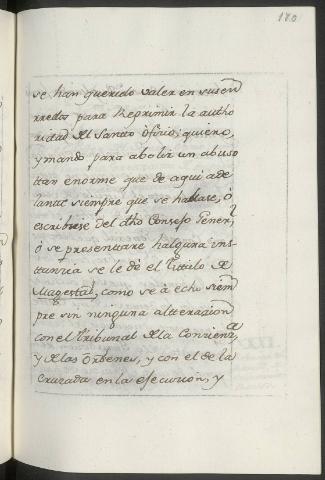 180
se han querido valer en susen
rredos para Reprimir la autho
ridad del Santto ôficio; quiero,
y mando para abolir un abuso
ttan enorme que de aqui ade
lantte siempre que se hablare, ô
escribiese del dho Consejo Gener,l
ô se presenttare halguna ins
ttancia se le dè el tittulo de
Magestad, como se à echo siem
pre sin ninguna altterazion
con el tribunal de la Conzienz,a
y de las Ôrdenes, y con el de la
Cruzada en la ejecucion, y